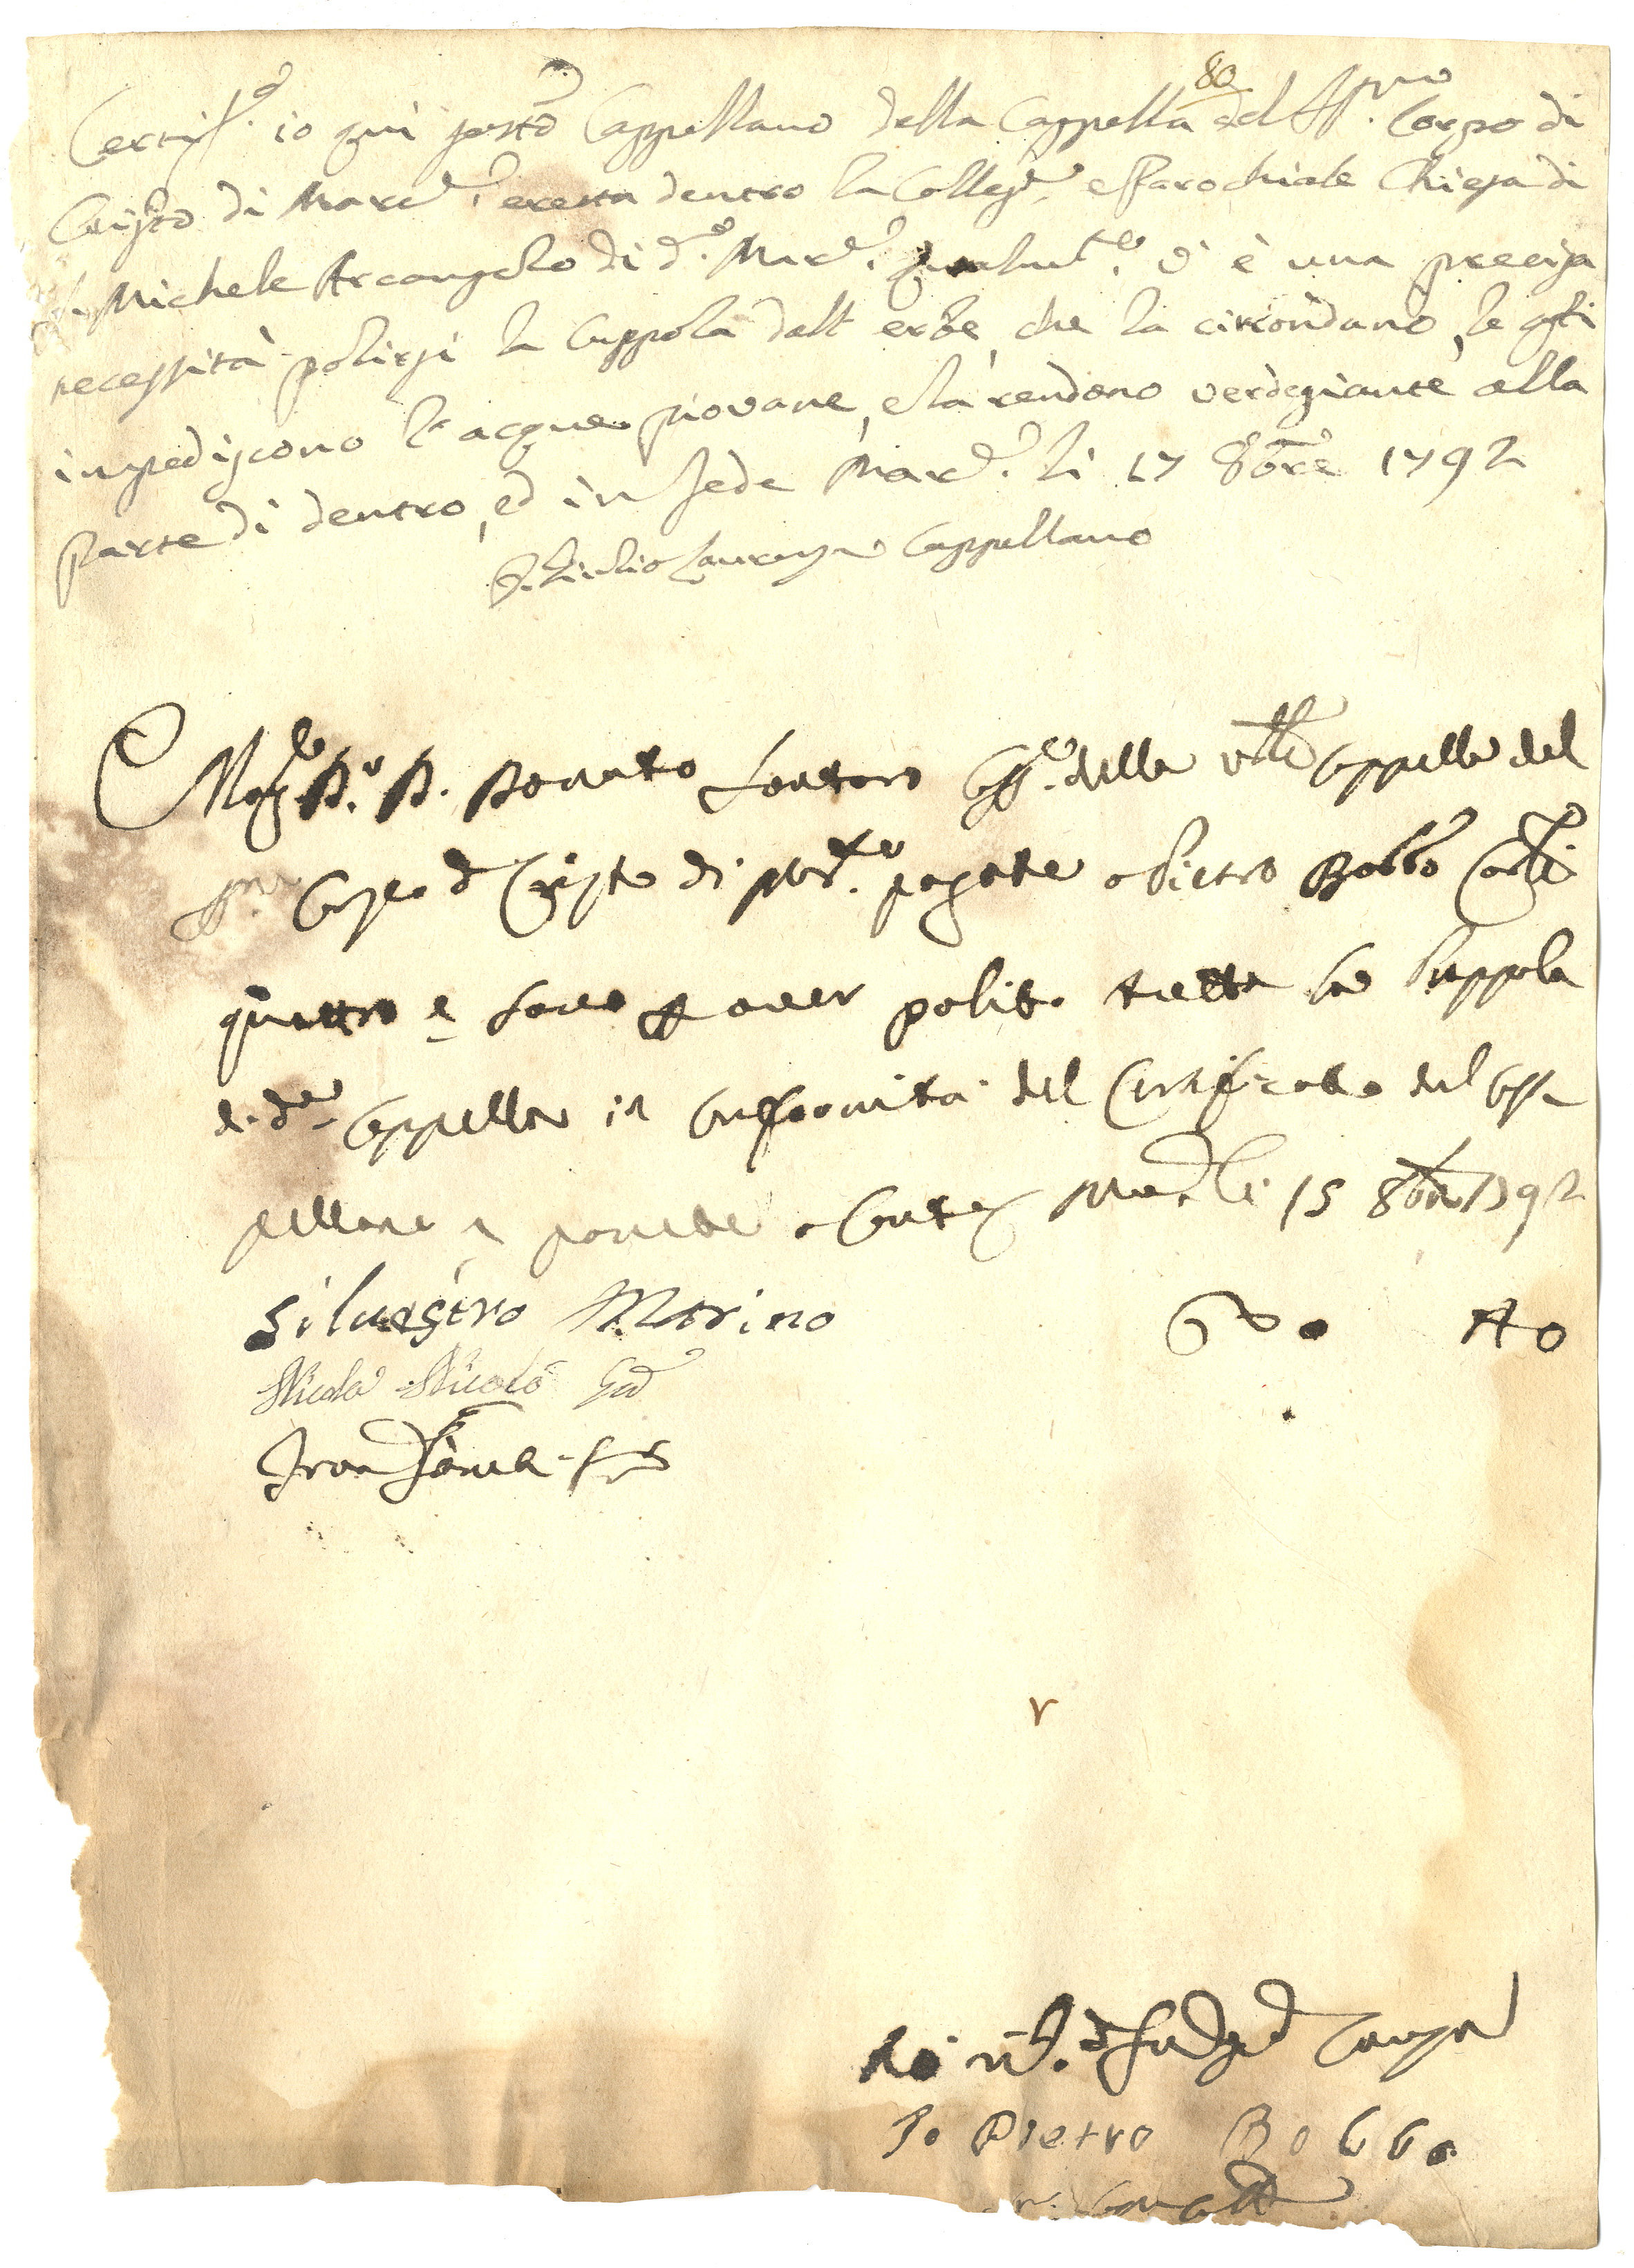 80
Certif.o io qui sotto Cappellano della Cappella del SS.mo Corpo di
Cristo di Mard.e eretta dentro la Colleg.e e Parochiale Chiesa di
S. Michele Arcangelo di d.o Mard.e qualm.te vi è una precisa
necessità polirsi la Cuppola dall'erbe, che la circondano, le q̃li
impediscono l'acque piovane, e la rendono verdegiante alla
parte di dentro, ed in fede Mard.e li 17 8bre 1792
D. Giulio Cappellano
Mag.co D.r D. Donato della Cappella del
SS.mo Corpo di Cristo di Mard.e pagate a Pietro Bobbo Carli
quattro e sono p aver polito tutta la Cuppola
di d.a Cappella in conformità del Certificato del Cap-
pellano e ponete a Conto Mard. li 15 8bre 1792
Silvestro Marino
Nicola
Io Pietro Bobbo